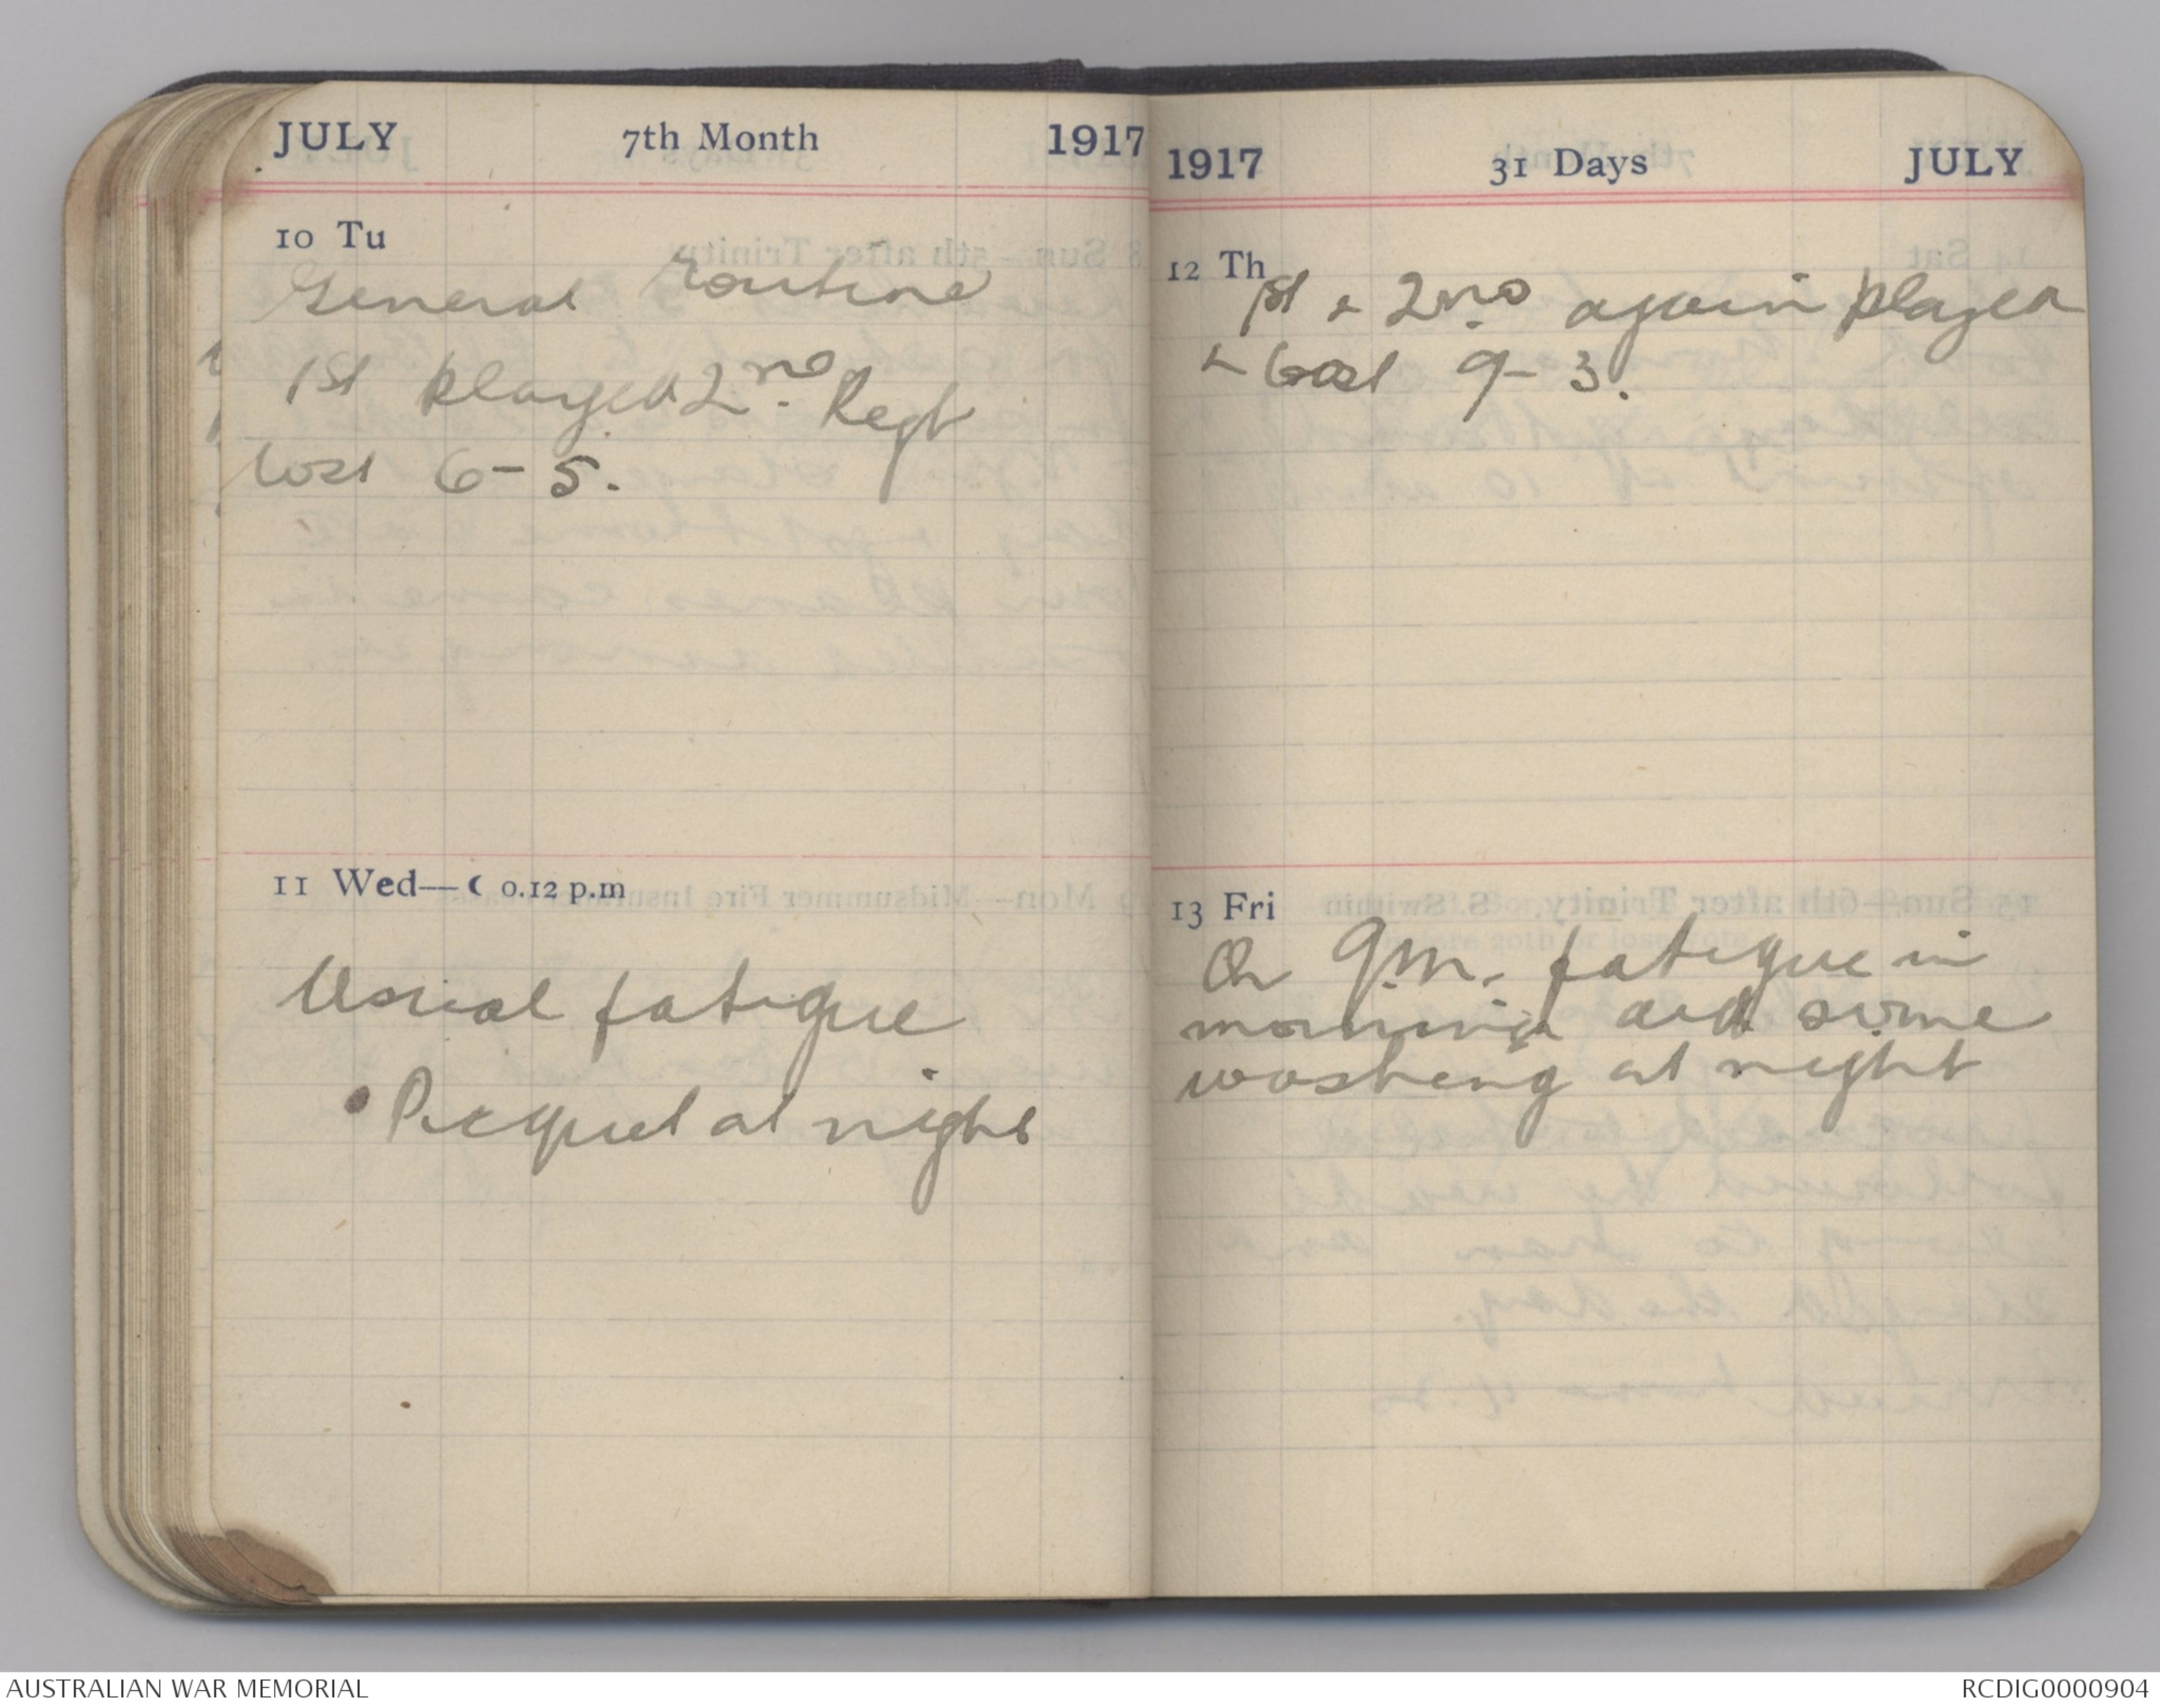 JULY 7th Month 1917
10 Tu
General routine
1st played 2nd Regt
lost 6-5.
11 Wed—☾ 0.12 p.m
Usual fatigue
Picquet at night
1917 31 Days JULY
12 Th
1st & 2nd again played
& lost 9-3.
13 Fri
On Q.M. fatigue in
morning did some
washing at night
AUSTRALIAN WAR MEMORIAL
RCDIG0000904